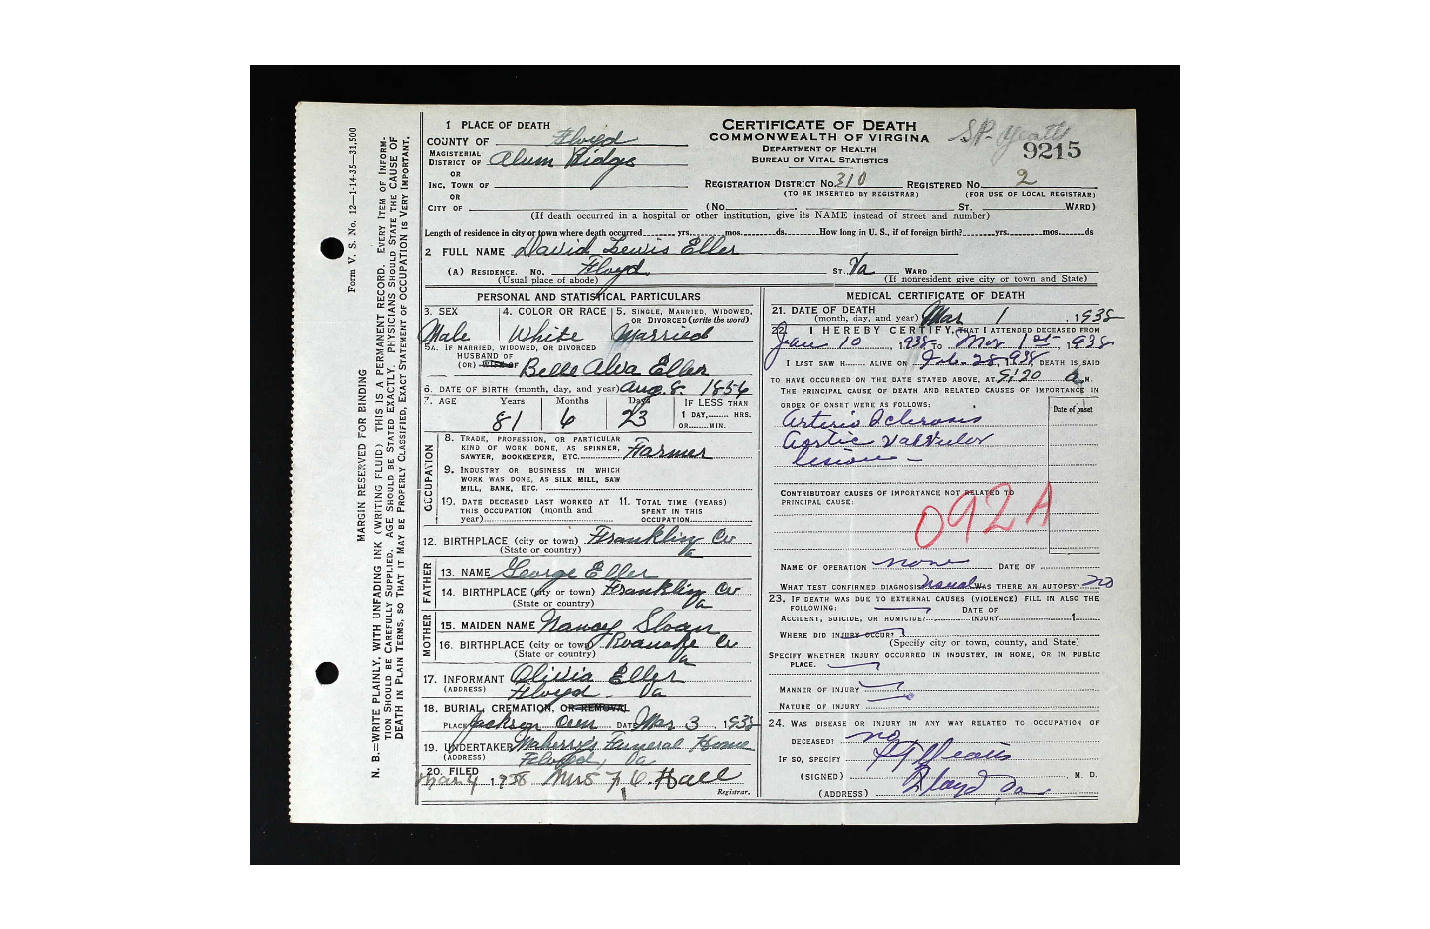 Form V. S. No. 12—1-14-35—31,500
MARGIN RESERVED FOR BINDING
N. B.—WRITE PLAINLY, WITH UNFADING INK (WRITING FLUID) THIS IS A PERMANENT RECORD. EVERY ITEM OF INFORM-
TION SHOULD BE CAREFULLY SUPPLIED. AGE SHOULD BE STATED EXACTLY. PHYSICIANS SHOULD STATE THE CAUSE OF
DEATH IN PLAIN TERMS, SO THAT IT MAY BE PROPERLY CLASSIFIED, EXACT STATEMENT OF OCCUPATION IS VERY IMPORTANT.
CERTIFICATE OF DEATH
COMMONWEALTH OF VIRGINIA
DEPARTMENT OF HEALTH
BUREAU OF VITAL STATISTICS
9215
1 PLACE OF DEATH
COUNTY OF Floyd
MAGISTERIAL DISTRICT OF Alum Ridge
OR
INC. TOWN OF
OR
CITY OF
REGISTRATION DISTRICT NO. 310 REGISTERED NO. 2
(TO BE INSERTED BY REGISTRAR) (FOR USE OF LOCAL REGISTRAR)
(No. ST. WARD)
(If death occurred in a hospital or other institution, give its NAME instead of street and number)
Length of residence in city or town where death occurred yrs. mos. ds. How long in U. S., if of foreign birth? yrs. mos. ds
2 FULL NAME David Lewis Eller
(A) RESIDENCE. NO. Floyd ST. Va WARD
(Usual place of abode) (If nonresident give city or town and State)
PERSONAL AND STATISTICAL PARTICULARS
3. SEX Male
4. COLOR OR RACE White
5. SINGLE, MARRIED, WIDOWED, OR DIVORCED (write the word) Married
5A. IF MARRIED, WIDOWED, OR DIVORCED
HUSBAND OF
(OR) WIFE OF Belle Alva Eller
6. DATE OF BIRTH (month, day, and year) Aug. 8. 1856
7. AGE Years 81 Months 6 Days 23 IF LESS THAN
1 DAY, HRS.
OR MIN.
OCCUPATION
8. TRADE, PROFESSION, OR PARTICULAR
KIND OF WORK DONE, AS SPINNER,
SAWYER, BOOKKEEPER, ETC. Farmer
9. INDUSTRY OR BUSINESS IN WHICH
WORK WAS DONE, AS SILK MILL, SAW
MILL, BANK, ETC.
10. DATE DECEASED LAST WORKED AT
THIS OCCUPATION (month and
year)
11. TOTAL TIME (YEARS)
SPENT IN THIS
OCCUPATION
12. BIRTHPLACE (city or town) Franklin Co
(State or country) Va
FATHER
13. NAME George Eller
14. BIRTHPLACE (city or town) Franklin Co
(State or country) Va
MOTHER
15. MAIDEN NAME Nancy Sloan
16. BIRTHPLACE (city or town) Roanoke Co
(State or country) Va
17. INFORMANT Olivia Eller
(ADDRESS) Floyd. Va
18. BURIAL, CREMATION, OR REMOVAL
PLACE Jackson Cem DATE Mar 3, 1938
19. UNDERTAKER Funeral Home
(ADDRESS) Floyd, Va
20. FILED Mar 4 1938 Mrs F. C. Hall
Registrar.
MEDICAL CERTIFICATE OF DEATH
21. DATE OF DEATH
(month, day, and year) Mar 1, 1938
22. I HEREBY CERTIFY, THAT I ATTENDED DECEASED FROM
Jan 10, 1938 TO Mar 1st, 1938
I LAST SAW H ALIVE ON Feb. 28, 1938 DEATH IS SAID
TO HAVE OCCURRED ON THE DATE STATED ABOVE, AT 5:20 A. M.
THE PRINCIPAL CAUSE OF DEATH AND RELATED CAUSES OF IMPORTANCE IN
ORDER OF ONSET WERE AS FOLLOWS: Date of onset
Arterio Sclerosis
Aortic Valvular
lesion —
CONTRIBUTORY CAUSES OF IMPORTANCE NOT RELATED TO
PRINCIPAL CAUSE:
092A
NAME OF OPERATION none DATE OF
WHAT TEST CONFIRMED DIAGNOSIS? Usual WAS THERE AN AUTOPSY? no
23. IF DEATH WAS DUE TO EXTERNAL CAUSES (VIOLENCE) FILL IN ALSO THE
FOLLOWING: DATE OF
ACCIDENT, SUICIDE, OR HOMICIDE? INJURY 1
WHERE DID INJURY OCCUR?
(Specify city or town, county, and State)
SPECIFY WHETHER INJURY OCCURRED IN INDUSTRY, IN HOME, OR IN PUBLIC
PLACE.
MANNER OF INJURY
NATURE OF INJURY
24. WAS DISEASE OR INJURY IN ANY WAY RELATED TO OCCUPATION OF
DECEASED? no
IF SO, SPECIFY
(SIGNED) M. D.
(ADDRESS) Floyd Va